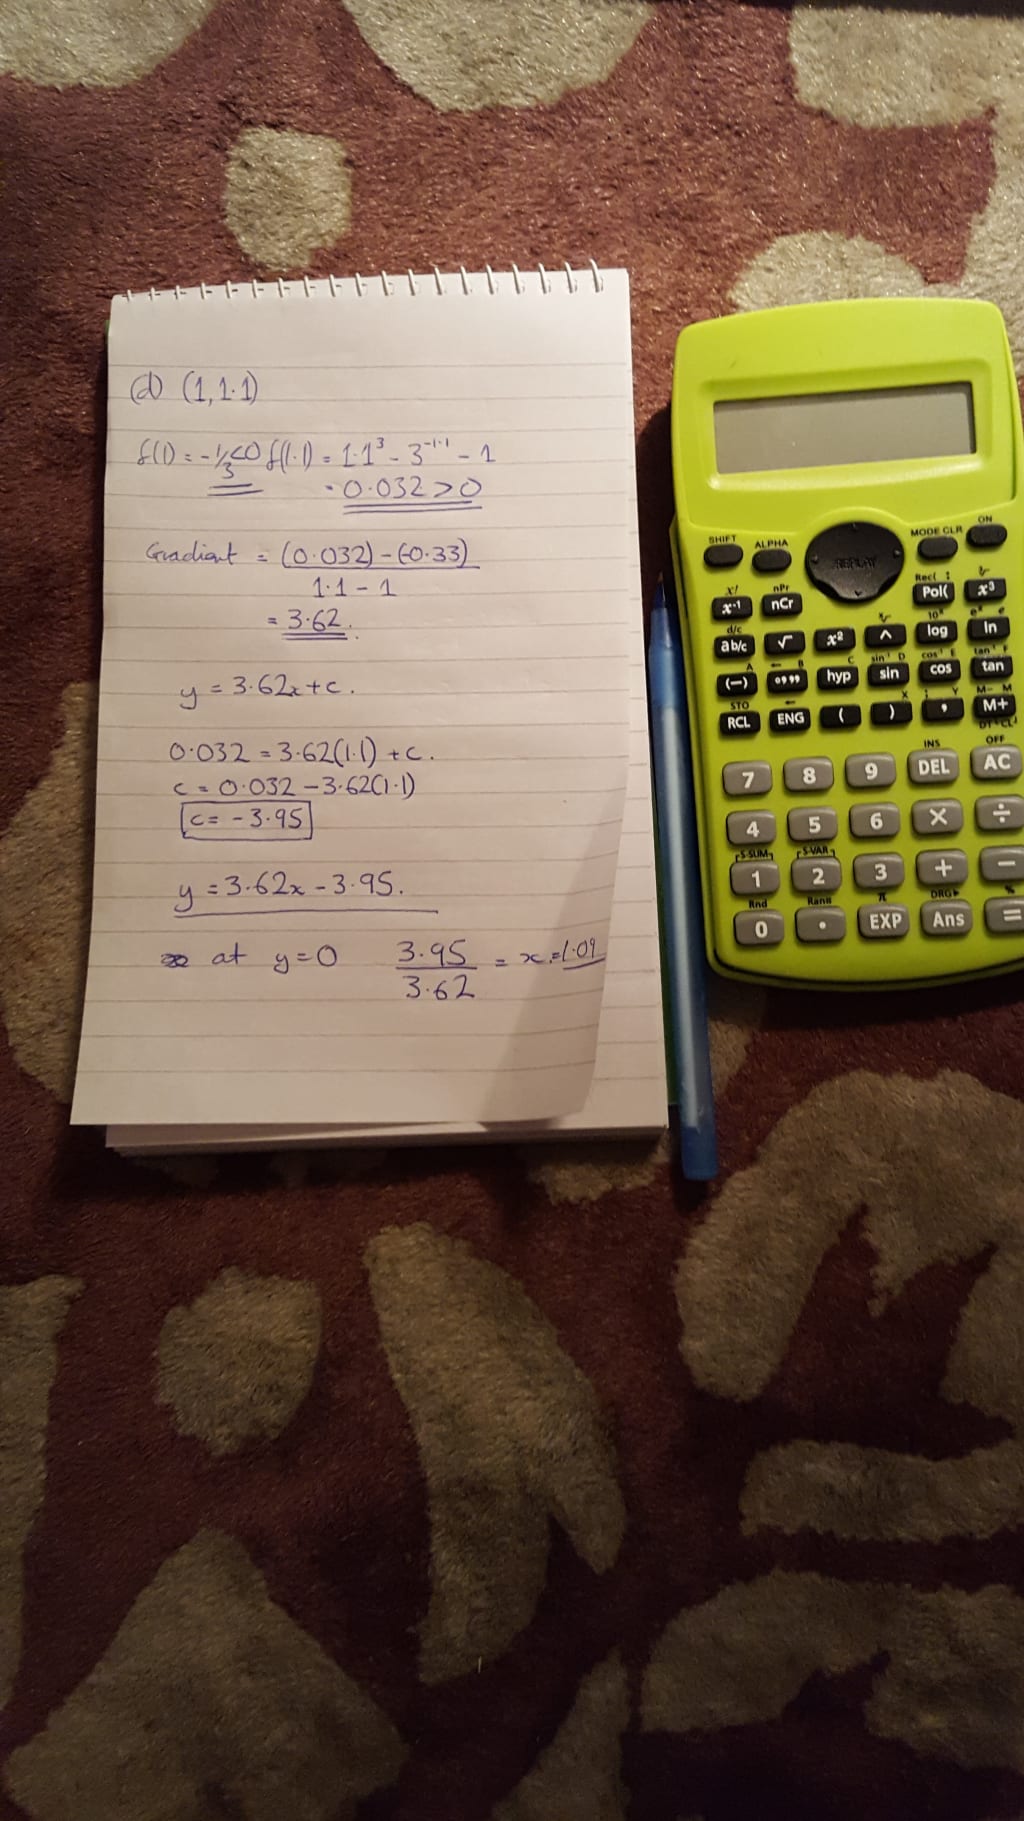 (d) (1, 1.1)
f(1) = -1/3 <0 f(1.1) = 1.1³ - 3^-1.1 - 1
= 0.032 > 0
Gradient = (0.032) - (-0.33)
1.1 - 1
= 3.62.
y = 3.62x + c.
0.032 = 3.62(1.1) + c.
c = 0.032 - 3.62(1.1)
c = -3.95
y = 3.62x - 3.95.
at y = 0 3.95 = x = 1.09
3.62
SHIFT ALPHA REPLAY MODE CLR ON
x! nPr Rec( :
x⁻¹ nCr Pol( x³
d/c 10ˣ eˣ e
ab/c √ x² ^ log ln
A ← B C sin⁻¹ D cos⁻¹ E tan⁻¹ F
(−) °,,, hyp sin cos tan
STO ← X ; Y M- M
RCL ENG ( ) , M+
DT CL
INS OFF
7 8 9 DEL AC
4 5 6 × ÷
S-SUM S-VAR
1 2 3 + −
Rnd Ran# π DRG► %
0 . EXP Ans =